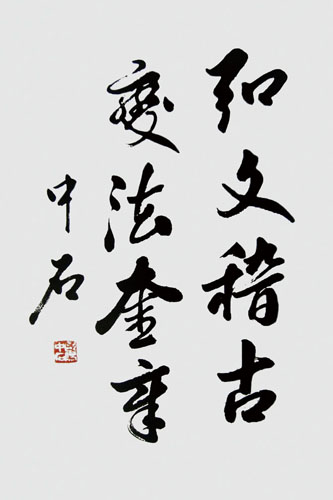 弘文稽古
變法奎章
中石